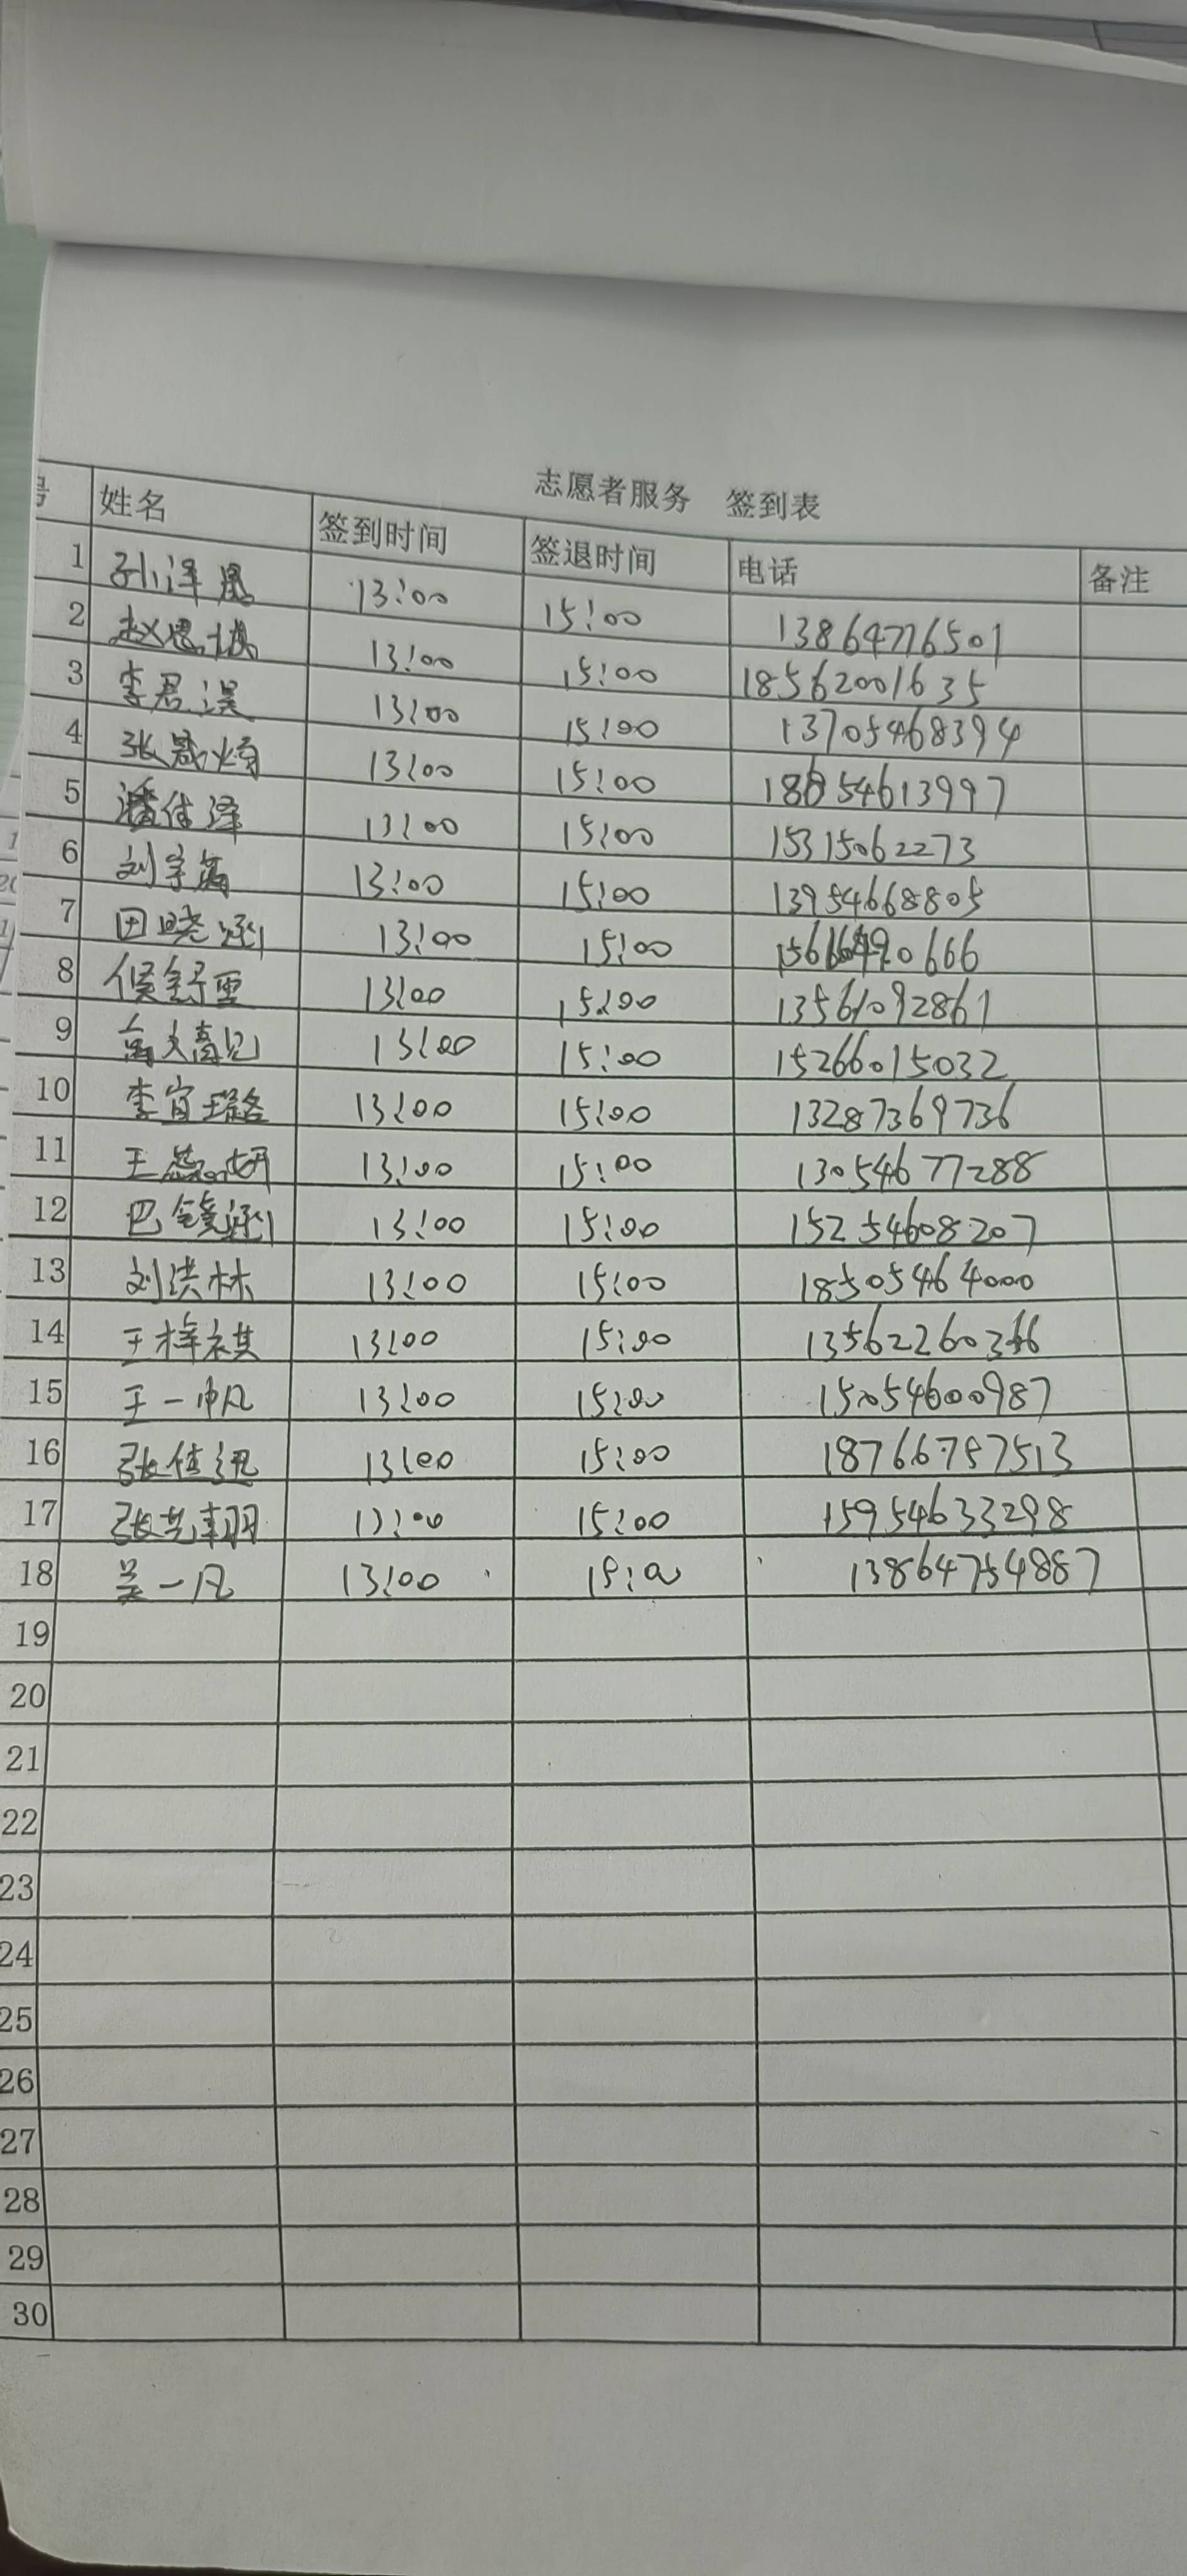 志愿者服务 签到表
号 姓名 签到时间 签退时间 电话 备注
1 孙泽恩 13:00 15:00 13864776501
2 赵思琪 13:00 15:00 18562001635
3 李君昊 13:00 15:00 13705468394
4 张晟 13:00 15:00 18654613997
5 潘佳泽 13:00 15:00 15315062273
6 刘宇 13:00 15:00 13954668805
7 田晓 13:00 15:00 0666
8 侯舒 13:00 15:00 13561092861
9 13:00 15:00 15266015032
10 李宜璐 13:00 15:00 13287369736
11 王 妍 13:00 15:00 13054677288
12 巴 13:00 15:00 15254608207
13 刘洪林 13:00 15:00 18505464000
14 王梓祺 13:00 15:00 13562260366
15 王一帆 13:00 15:00 15054600987
16 张佳 13:00 15:00 18766787513
17 张艺 13:00 15:00 15954633298
18 吴一凡 13:00 15:00 13864754887
19
20
21
22
23
24
25
26
27
28
29
30